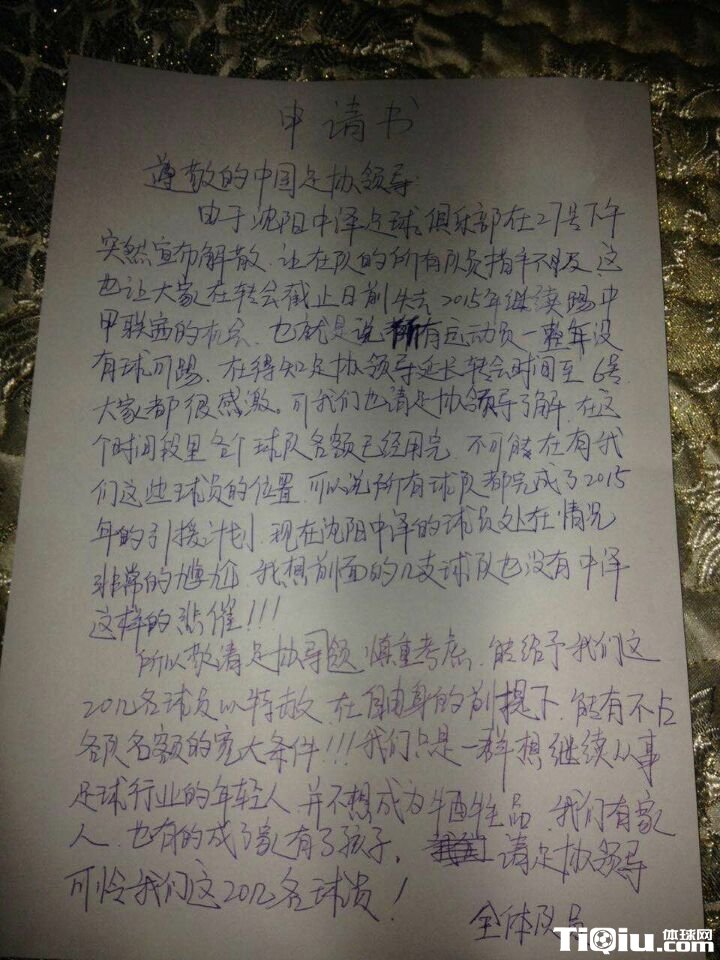 申请书
尊敬的中国足协领导:
由于沈阳中泽足球俱乐部在27号下午
突然宣布解散、让在队的所有队员措手不及、这
也让大家在转会截止日前失去2015年继续踢中
甲联赛的机会、也就是说所有运动员一整年没
有球可踢、在得知足协领导延长转会时间至6号
大家都很感激。可我们也请足协领导了解、在这
个时间段里各个球队名额已经用完、不可能在有我
们这些球员的位置、可以说所有球队都完成了2015
年的引援计划、现在沈阳中泽的球员处在情况
非常的尴尬、我想前面的几支球队也没有中泽
这样的悲催!!!
所以敬请足协导领慎重考虑、能给予我们这
20几名球员以特赦、在自由身的前提下、能有不占
各队名额的宽大条件!!!我们只是一群想继续从事
足球行业的年轻人、并不想成为牺牲品、我们有家
人、也有的成了家有了孩子。请足协领导
可怜我们这20几名球员!
全体队员
TiQiu.com
体球网